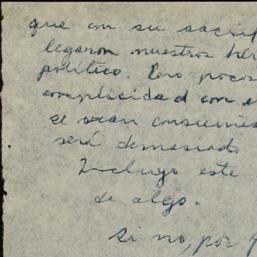 que con su sacrif
legaron nuestros hér
político. Pero pocos
complicidad con e
se vean consumid
será demasiado
Incluso este
de algo.
Si no, por q